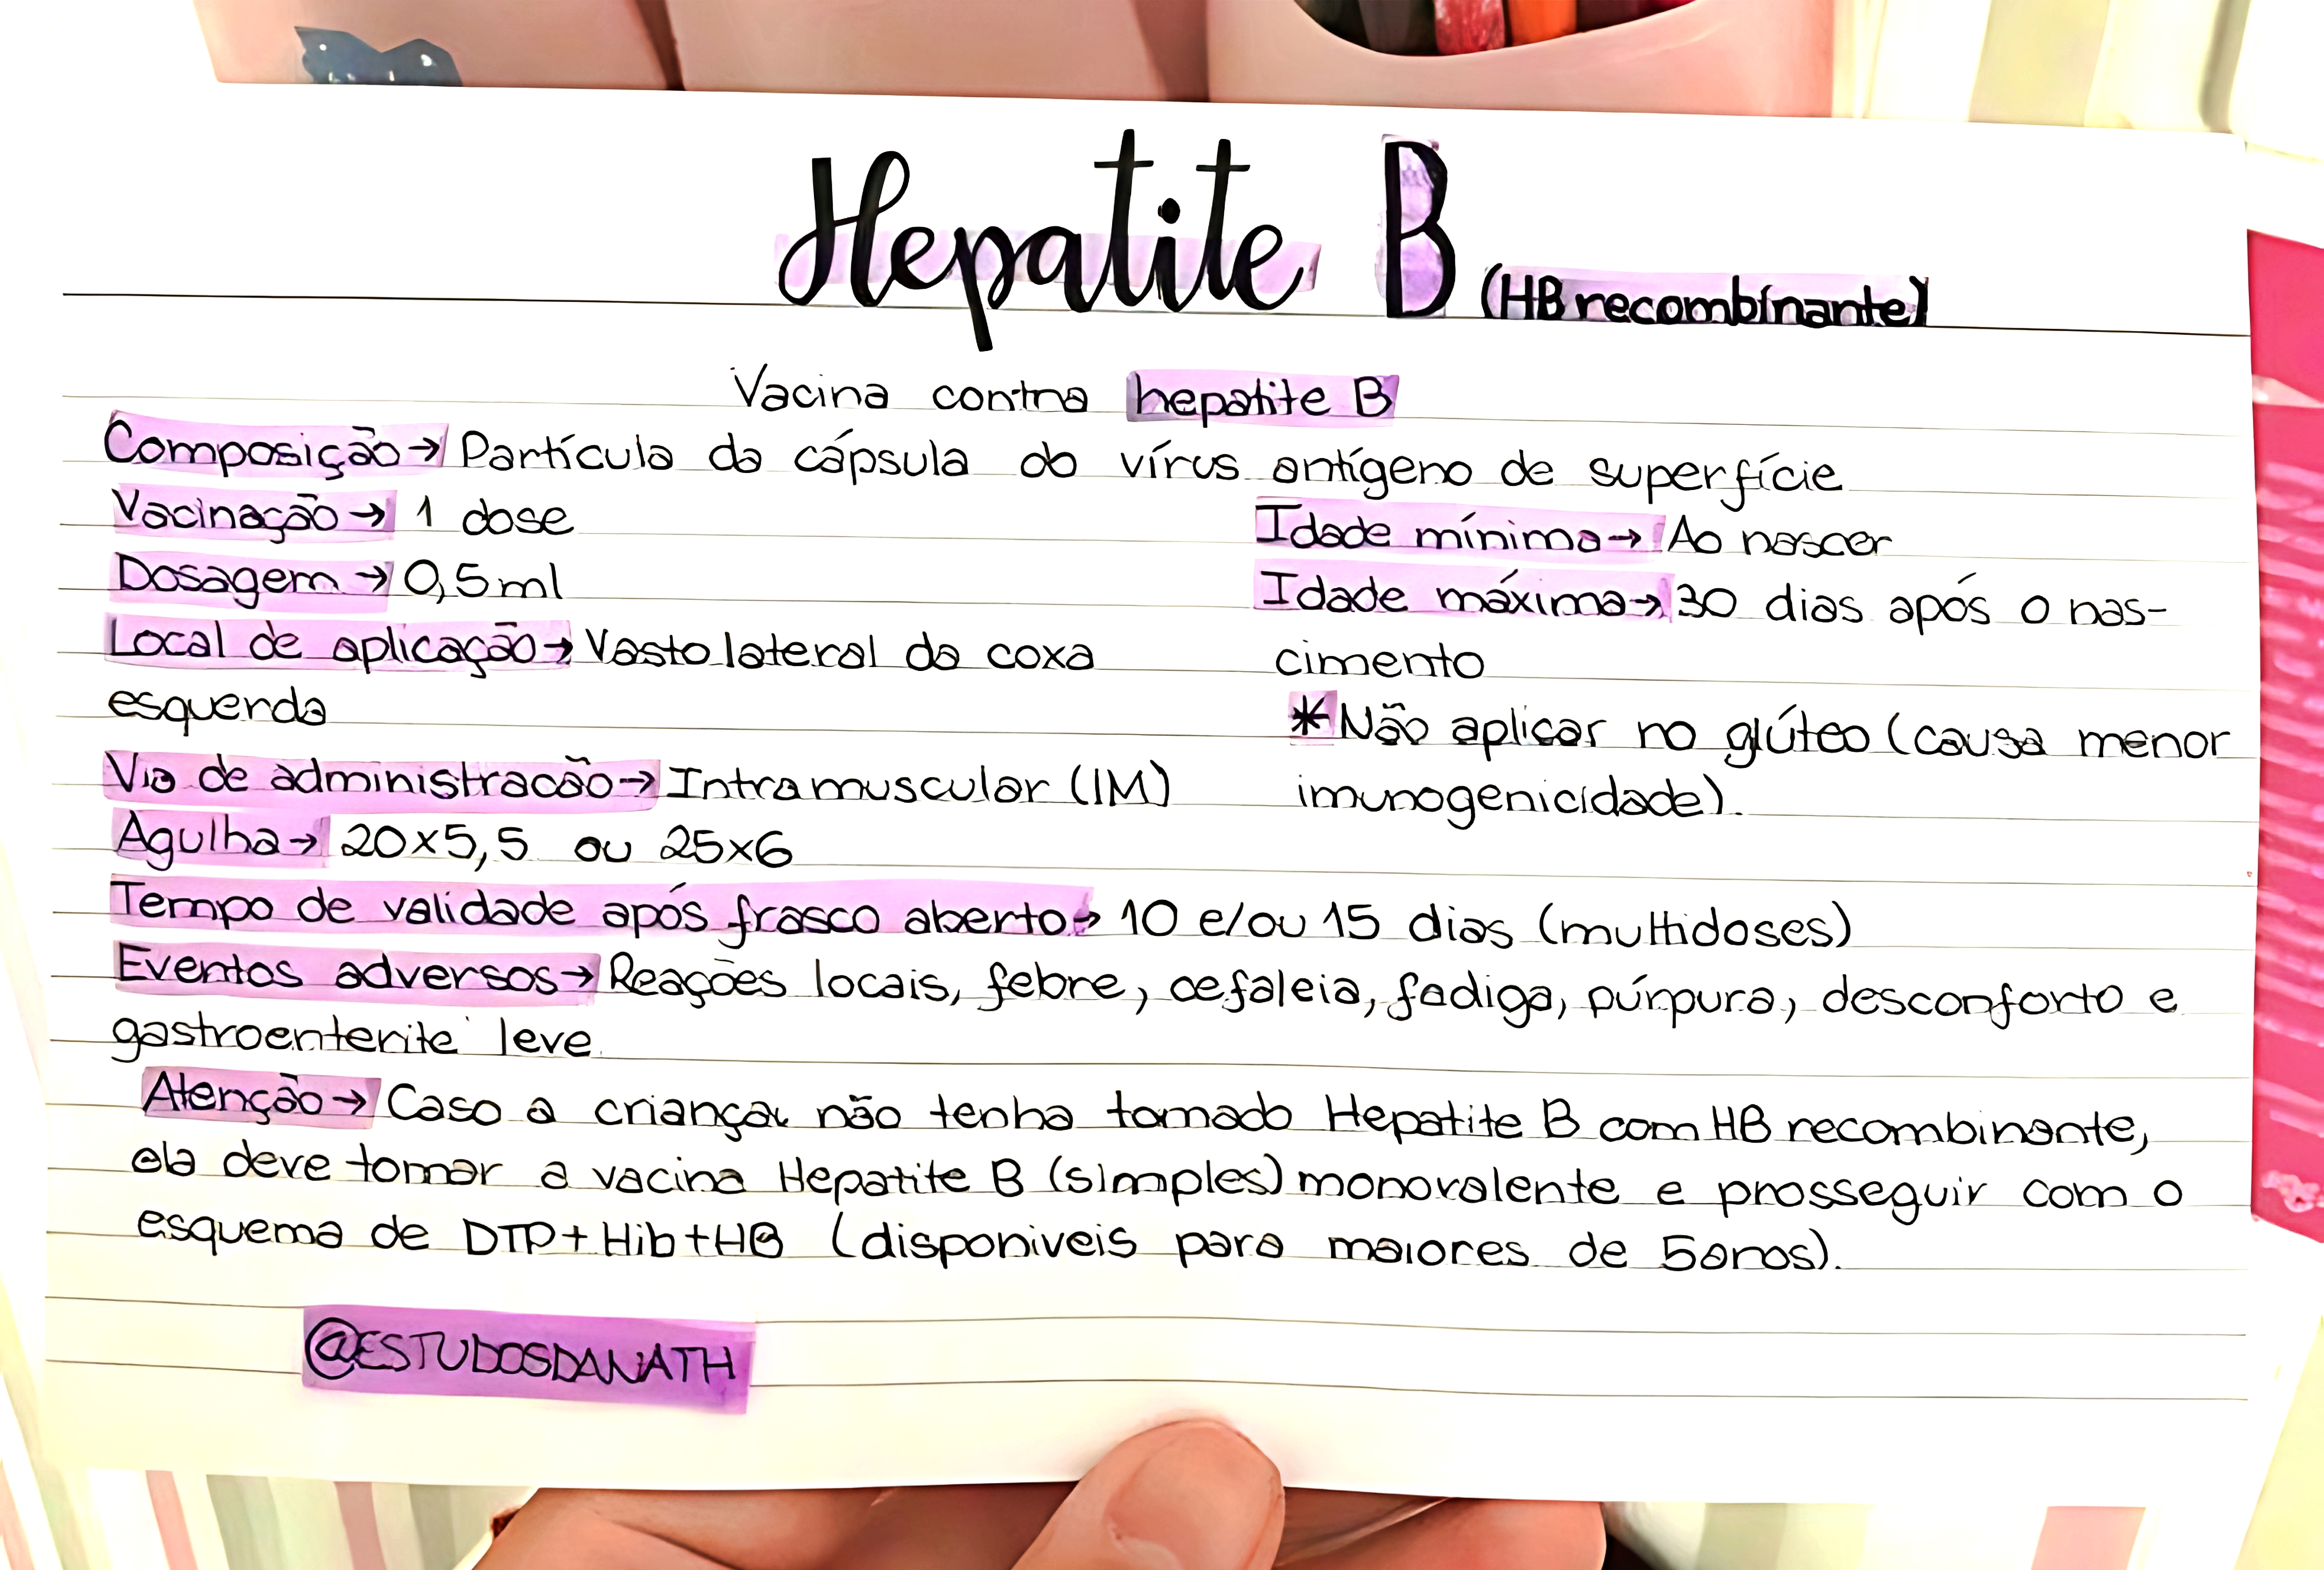 Hepatite B (HB recombinante)
Vacina contra hepatite B
Composição → Partícula da cápsula do vírus antígeno de superfície
Vacinação → 1 dose
Dosagem → 0,5ml
Local de aplicação → Vasto lateral da coxa
esquerda
Via de administracão → Intramuscular (IM)
Agulha → 20x5,5 ou 25x6
Idade mínima → Ao nascer
Idade máxima → 30 dias após o nas-
cimento
*Não aplicar no glúteo (causa menor
imunogenicidade).
Tempo de validade após frasco aberto → 10 e/ou 15 dias (multidoses)
Eventos adversos → Reações locais, febre, cefaleia, fadiga, púrpura, desconforto e
gastroenterite leve
Atenção → Caso a criança não tenha tomado Hepatite B com HB recombinante,
ela deve tomar a vacina Hepatite B (simples) monovalente e prosseguir com o
esquema de DTP+Hib+HB (disponiveis para maiores de 5anos).
@ESTUDOSDANATH